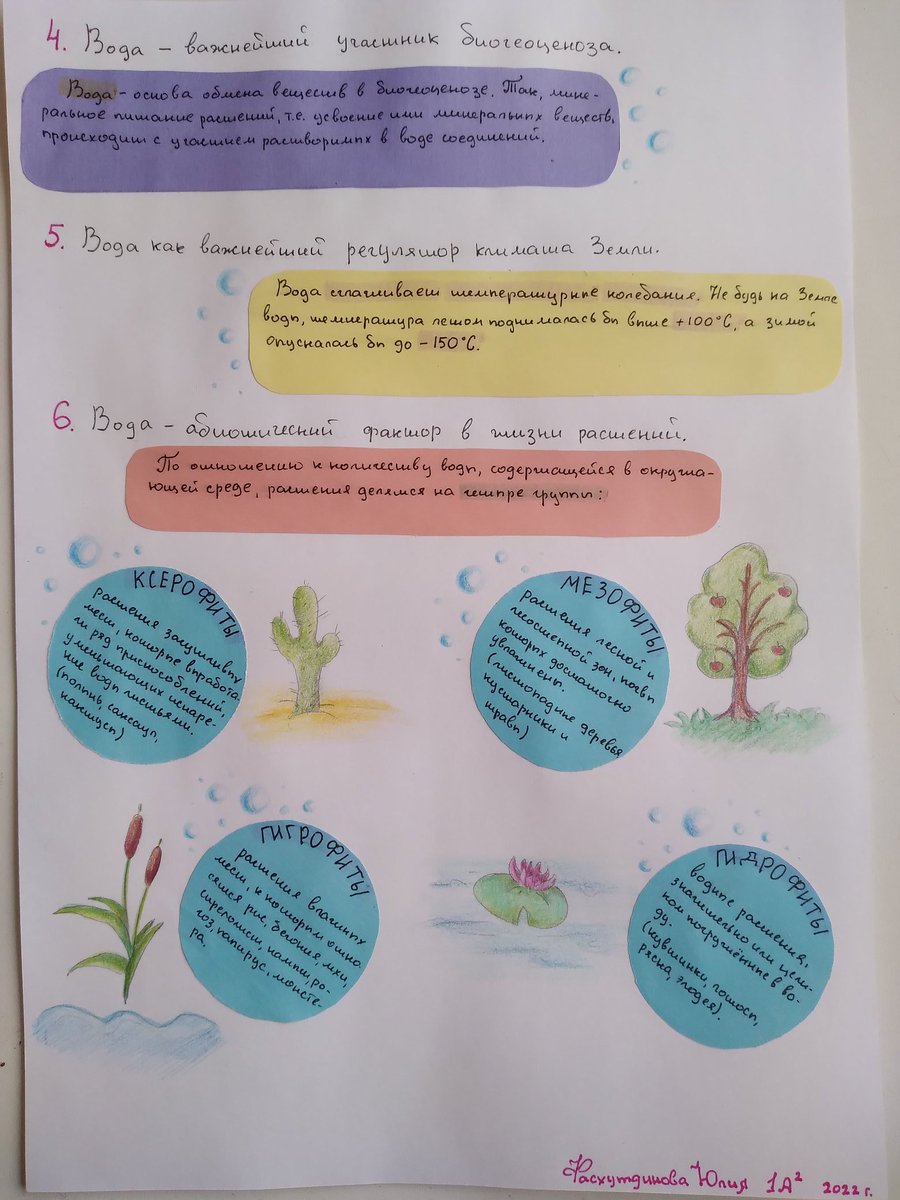 4. Вода – важнейший участник биогеоценоза.
Вода – основа обмена веществ в биогеоценозе. Так, мине-
ральное питание растений, т.е. усвоение ими минеральных веществ,
происходит с участием растворимых в воде соединений.
5. Вода как важнейший регулятор климата Земли.
Вода сглаживает температурные колебания. Не будь на Земле
воды, температура летом поднималась бы выше +100°С, а зимой
опускалась бы до –150°С.
6. Вода – абиотический фактор в жизни растений.
По отношению к количеству воды, содержащейся в окружа-
ющей среде, растения делятся на четыре группы:
КСЕРОФИТЫ
растения засушливых
мест, которые выработа
ли ряд приспособлений,
уменьшающих испаре-
ние воды листьями.
(полынь, саксаул,
кактусы)
МЕЗОФИТЫ
растения лесной и
лесостепной зон, почвы
которых достаточно
увлажнены.
(листопадные деревья
кустарники и
травы)
ГИГРОФИТЫ
растения влажных
мест, к которым отно
сятся рис, бегония, мхи,
ситреполисти, камыш, ро-
гоз, папирус, монсте-
ра.
ГИДРОФИТЫ
водные растения,
значительно или цели-
ком погружённые в во-
ду.
(кувшинки, лотосы,
ряска, элодея).
Фасхутдинова Юлия 1А² 2022 г.